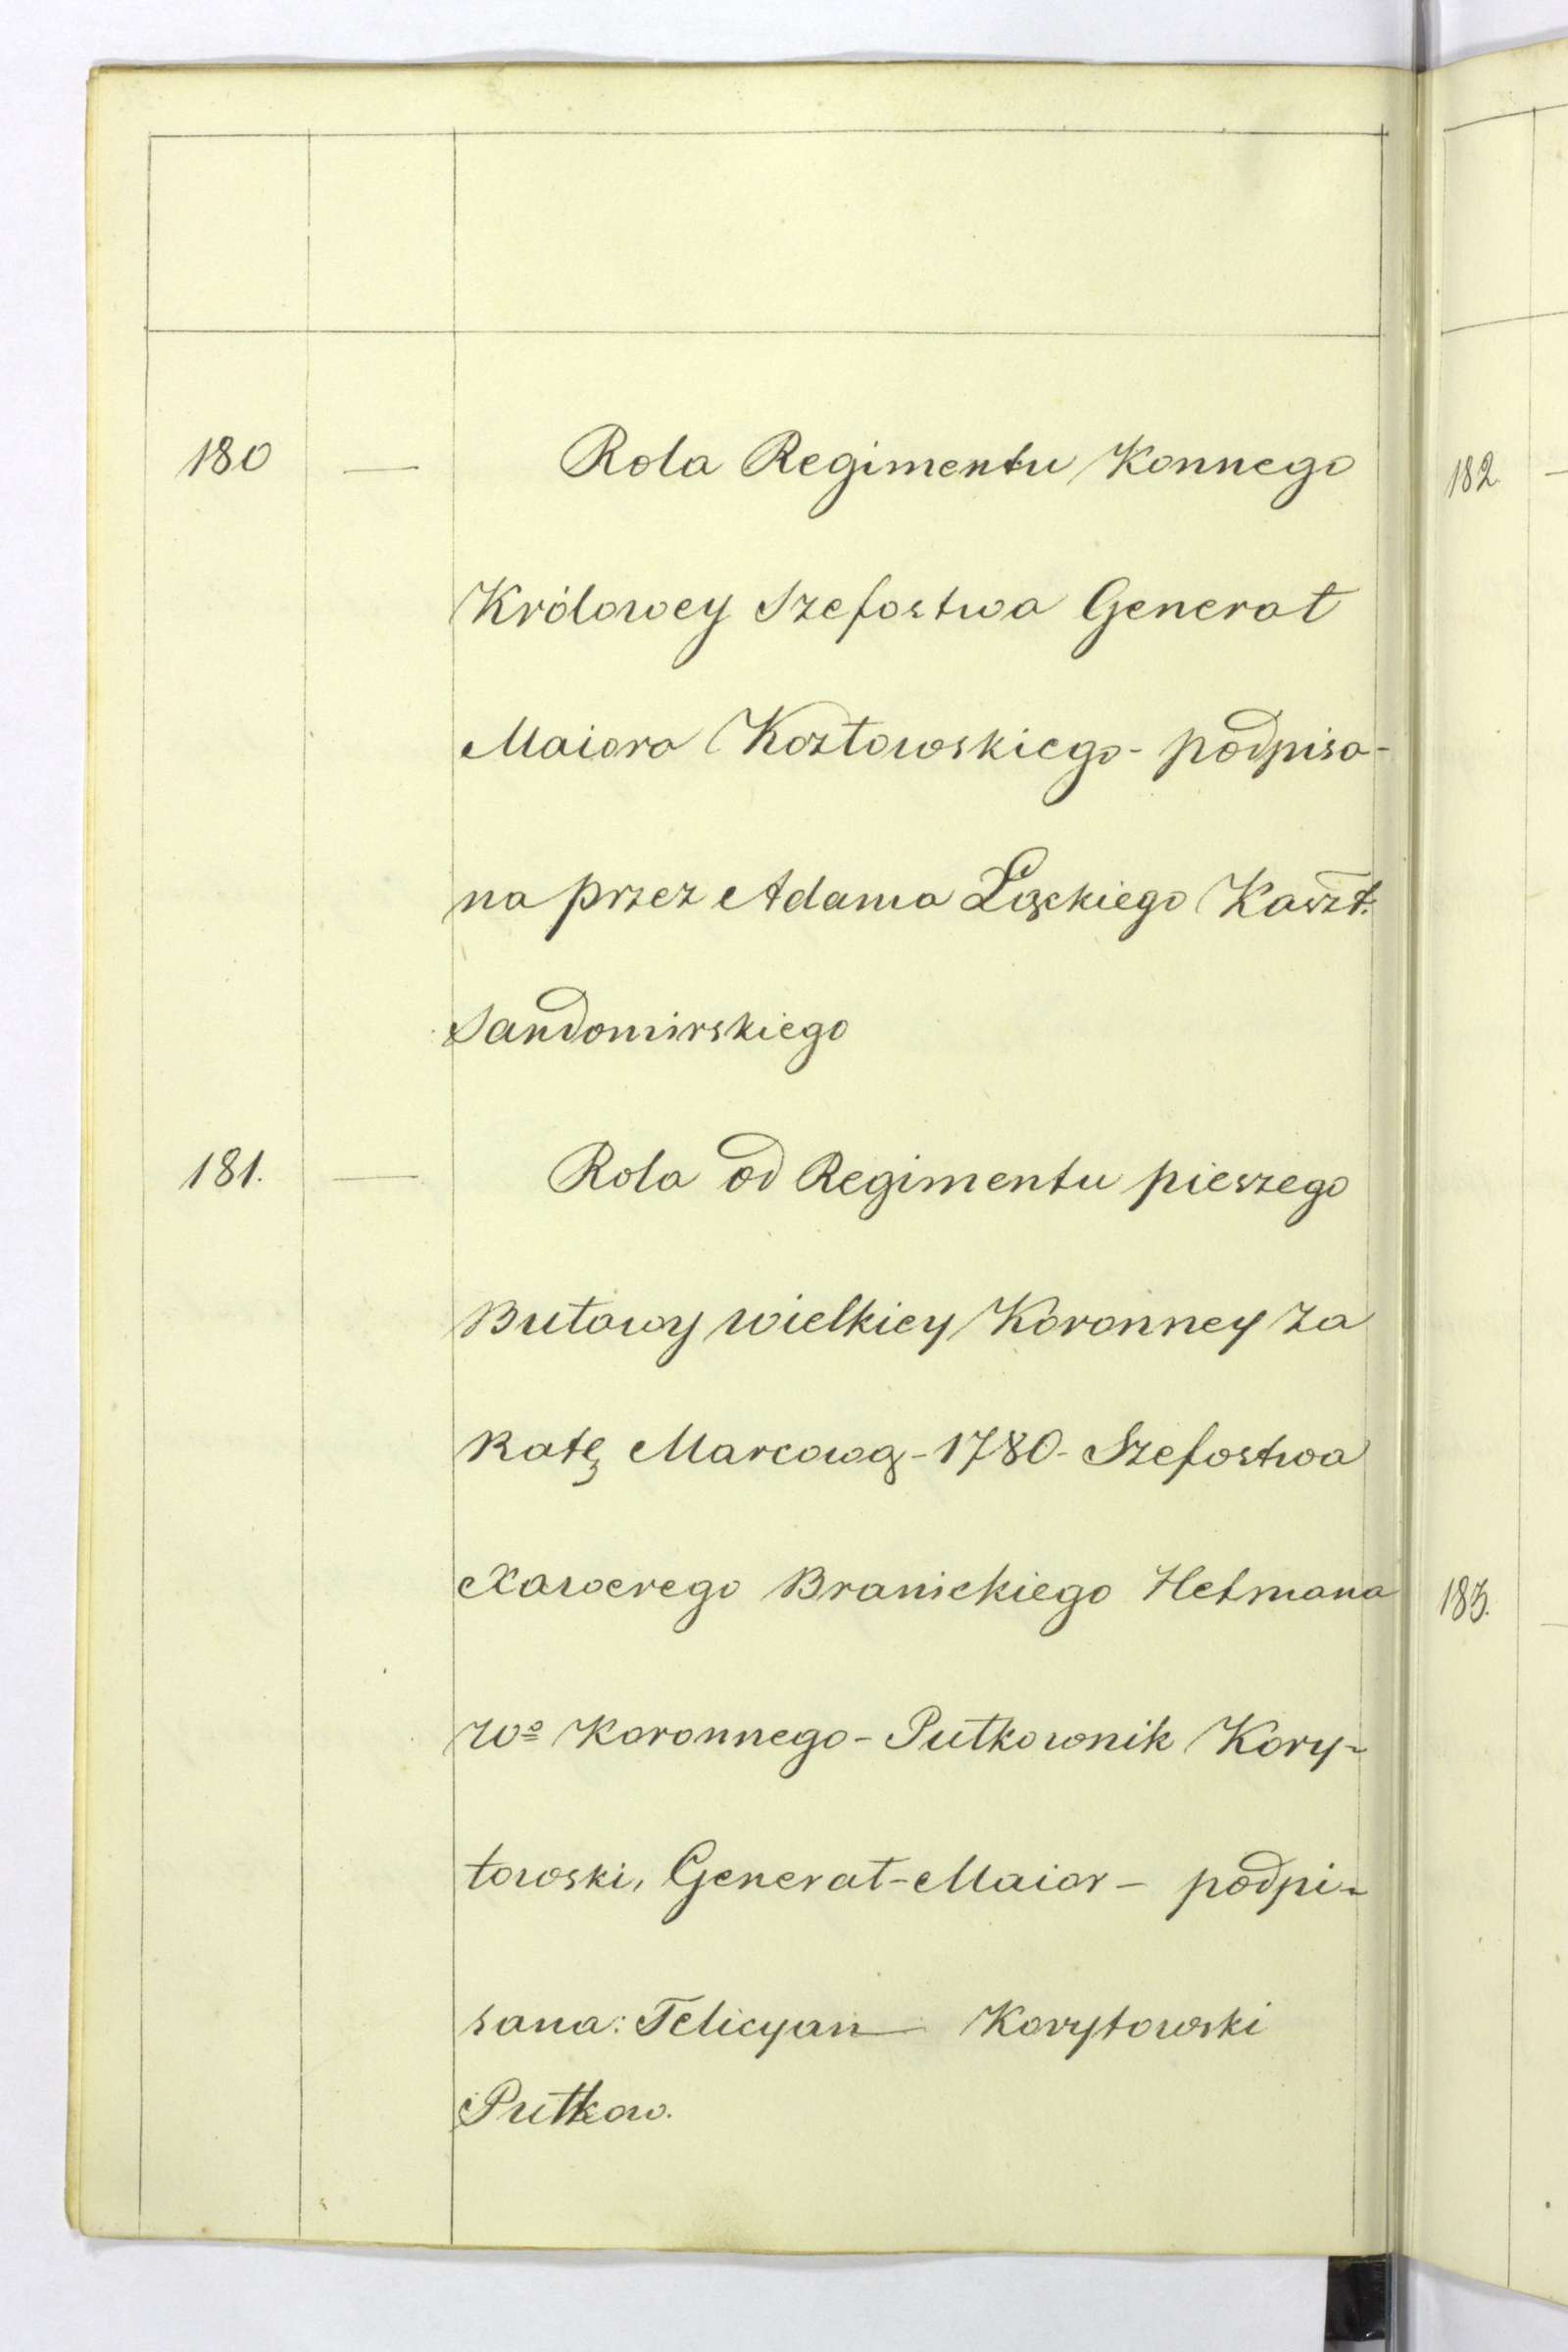 180 — Rola Regimentu Konnego
Królowey Szefostwa Generał
Maiora Kozłowskiego - podpisa-
na przez Adama Łąckiego Kaszt.
Sandomirskiego
181. — Rola od Regimentu pieszego
Buławy wielkiey Koronney za
Ratę Marcową - 1780 - Szefostwa
Xawerego Branickiego Hetmana
Wo Koronnego - Pułkownik Kory-
towski, Generał-Maior - podpi-
sana: Felicyan Korytowski
Pułkow.
182.
183.